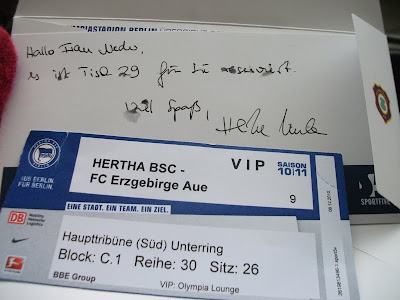 Hallo Frau
es ist Tisch 29 für Sie reserviert.
Viel Spaß,
HERTHA BSC -
FC Erzgebirge Aue
VIP
SAISON
10|11
9
AUS BERLIN.
FÜR BERLIN.
EINE STADT. EIN TEAM. EIN ZIEL.
DB
Mobility
Networks
Logistics
Haupttribüne (Süd) Unterring
Block: C.1 Reihe: 30 Sitz: 26
BBE Group
VIP: Olympia Lounge
SPORTFIVE